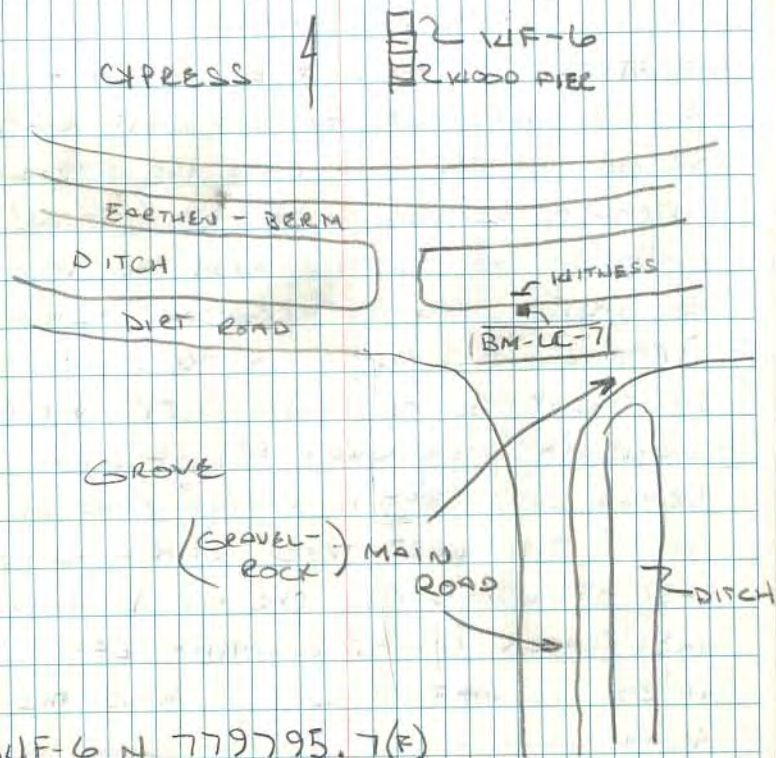 WF-6
CYPRESS
WOOD PIER
EARTHEN - BERM
DITCH
WITNESS
DIRT ROAD
BM-LC-7
GROVE
(GRAVEL-
ROCK)
MAIN
ROAD
DITCH
WF-6 N 779795.7(F)